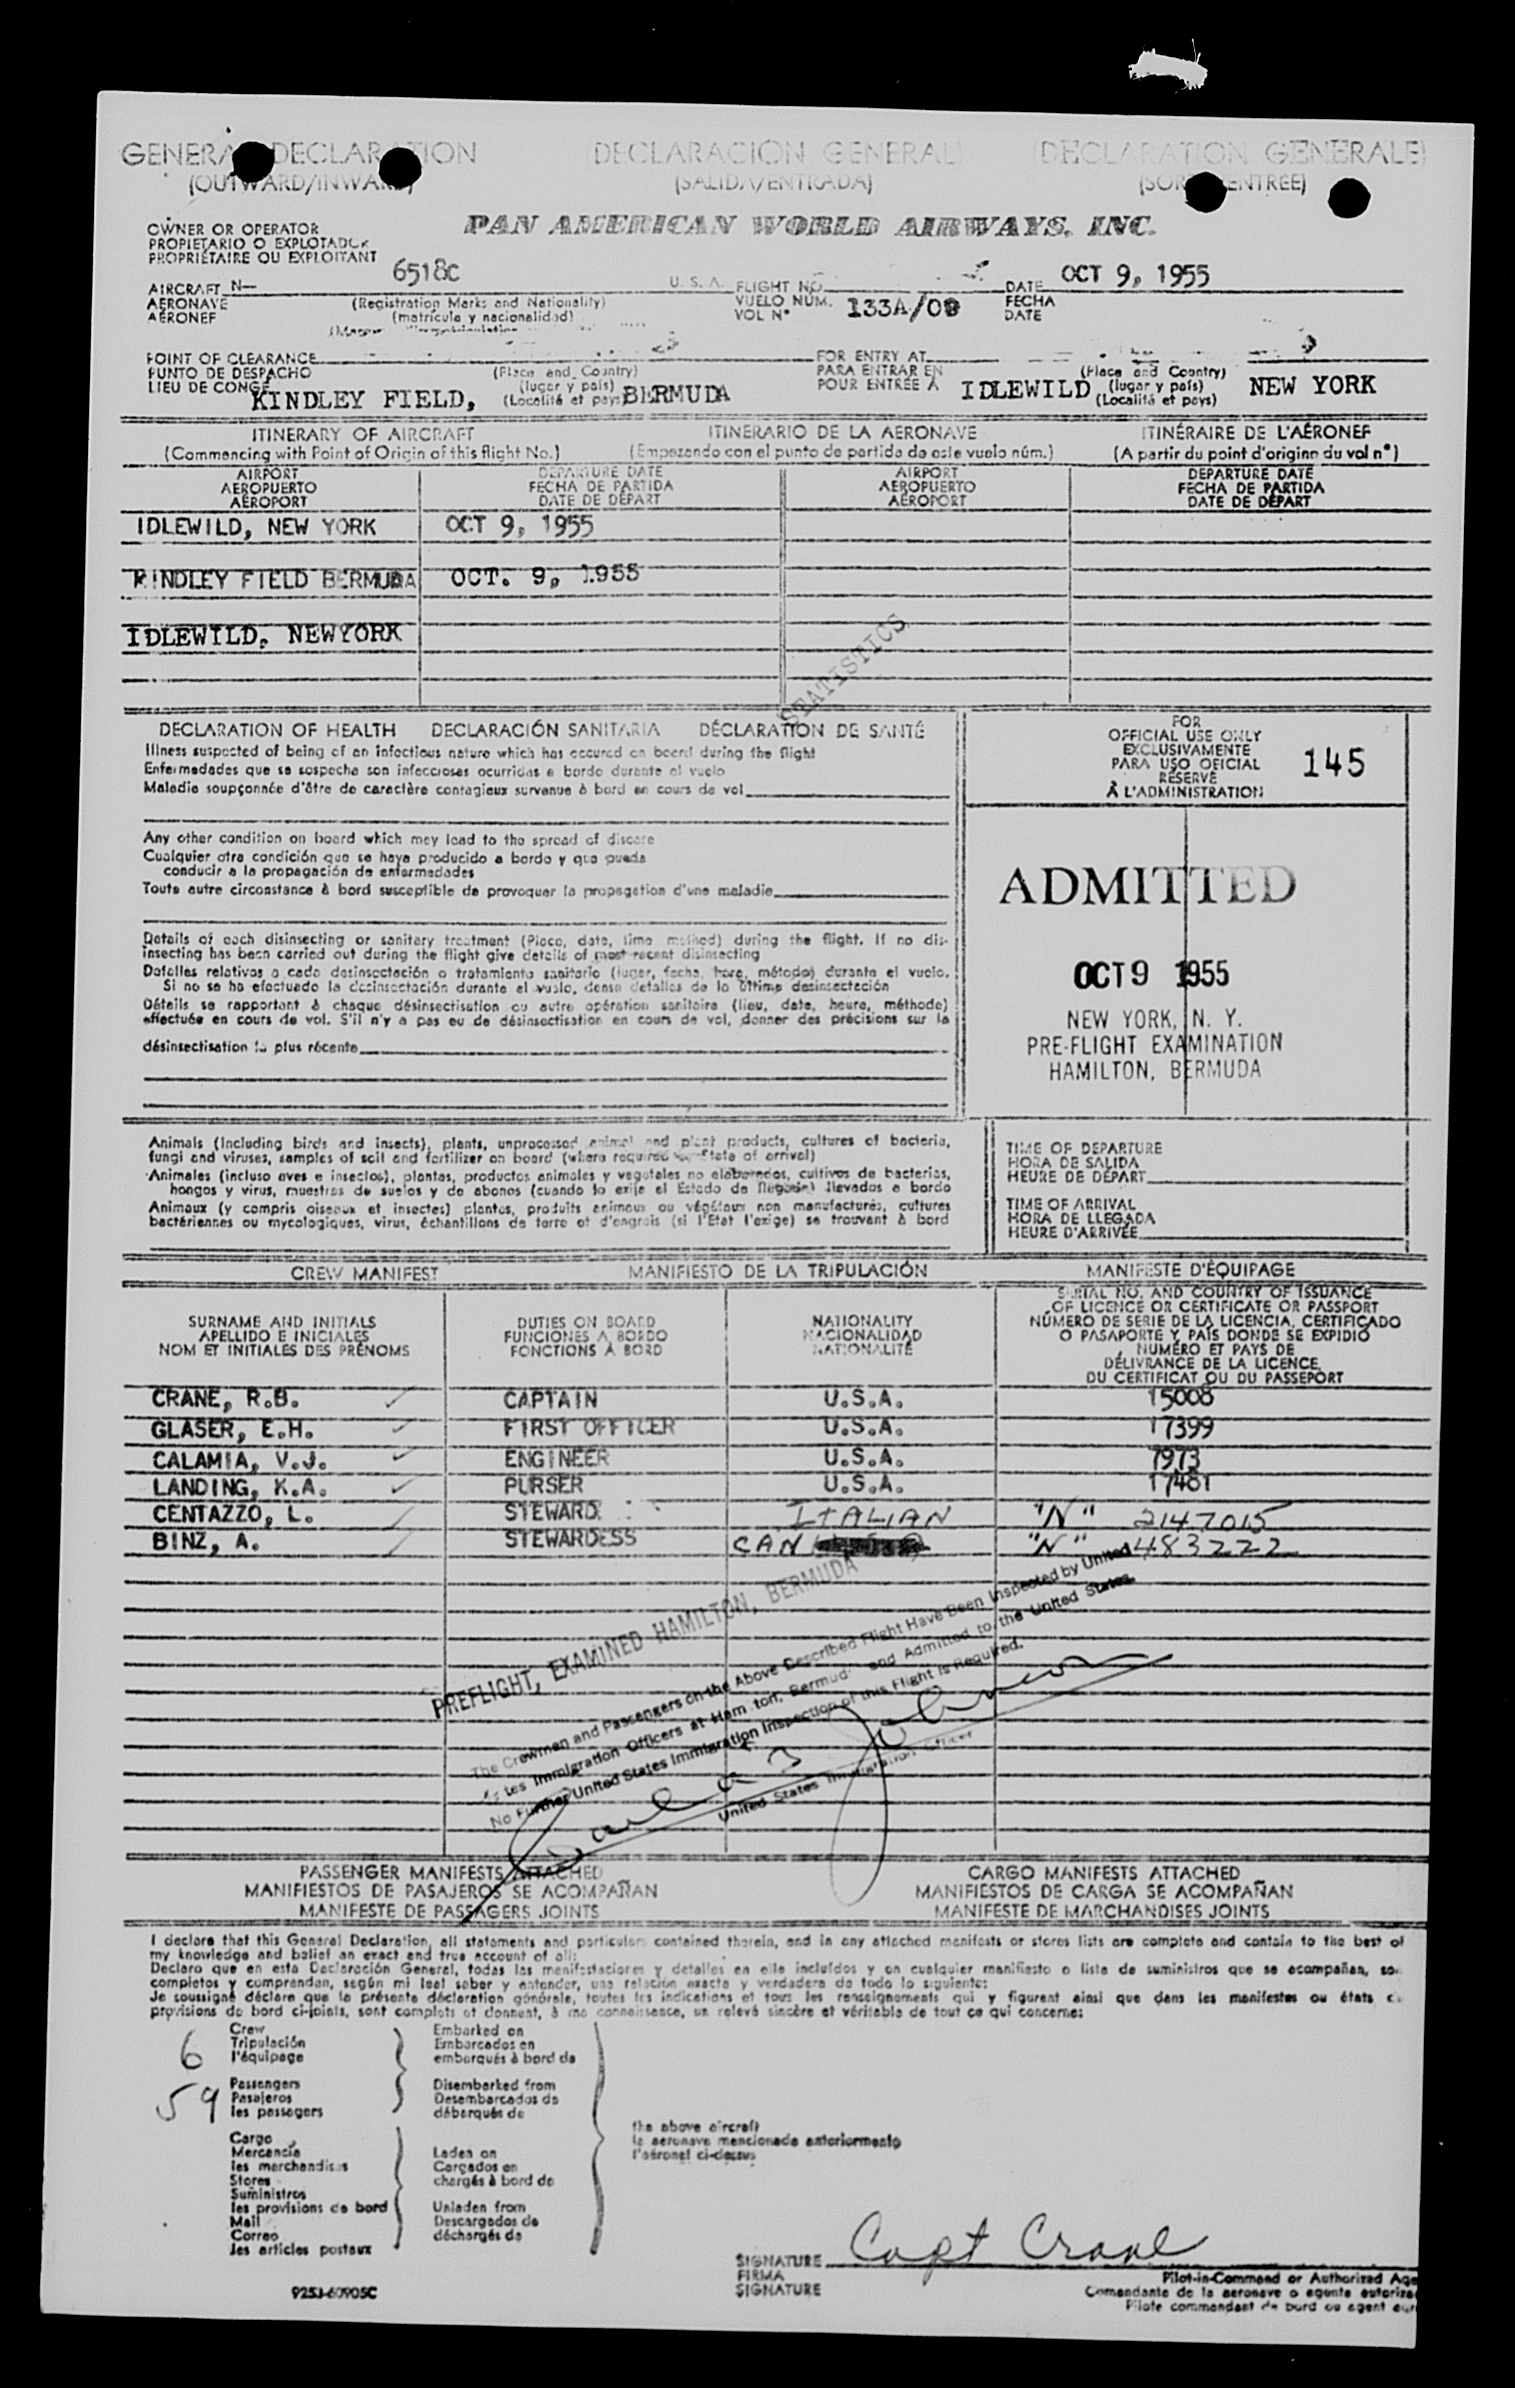 GENERAL DECLARATION (DECLARACION GENERAL) (DECLARATION GENERALE)
(OUTWARD/INWARD) (SALIDA/ENTRADA) (SORTIE/ENTREE)
OWNER OR OPERATOR PAN AMERICAN WORLD AIRWAYS, INC.
PROPIETARIO O EXPLOTADOR
PROPRIÉTAIRE OU EXPLOITANT
AIRCRAFT N— 6518C U. S. A. FLIGHT NO. DATE OCT 9, 1955
AERONAVE (Registration Marks and Nationality) VUELO NÚM. 133A/09 FECHA
AÉRONEF (matrícula y nacionalidad) VOL N° DATE
POINT OF CLEARANCE FOR ENTRY AT
PUNTO DE DESPACHO (Place and Country) PARA ENTRAR EN (Place and Country)
LIEU DE CONGÉ (lugar y país) POUR ENTRÉE À (lugar y país)
KINDLEY FIELD, (Localité et pays) BERMUDA IDLEWILD (Localité et pays) NEW YORK
ITINERARY OF AIRCRAFT ITINERARIO DE LA AERONAVE ITINÉRAIRE DE L'AÉRONEF
(Commencing with Point of Origin of this flight No.) (Empezando con el punto de partida de este vuelo núm.) (A partir du point d'origine du vol n°)
AIRPORT DEPARTURE DATE AIRPORT DEPARTURE DATE
AEROPUERTO FECHA DE PARTIDA AEROPUERTO FECHA DE PARTIDA
AÉROPORT DATE DE DÉPART AÉROPORT DATE DE DÉPART
IDLEWILD, NEW YORK OCT 9, 1955
KINDLEY FIELD BERMUDA OCT. 9, 1955
IDLEWILD, NEWYORK
STATISTICS
DECLARATION OF HEALTH DECLARACIÓN SANITARIA DÉCLARATION DE SANTÉ
Illness suspected of being of an infectious nature which has occured on board during the flight
Enfermedades que se sospecha son infecciosas ocurridas a bordo durante el vuelo
Maladie soupçonnée d'être de caractère contagieux survenue à bord en cours de vol
Any other condition on board which may lead to the spread of disease
Cualquier otra condición que se haya producido a bordo y que pueda
conducir a la propagación de enfermedades
Toute autre circonstance à bord susceptible de provoquer la propagation d'une maladie
Details of each disinsecting or sanitary treatment (Place, date, time method) during the flight. If no dis-
insecting has been carried out during the flight give details of most recent disinsecting
Detalles relativos a cada desinsectación o tratamiento sanitario (lugar, fecha, hora, método) durante el vuelo.
Si no se ha efectuado la desinsectación durante el vuelo, dense detalles de la última desinsectación
Détails se rapportant à chaque désinsectisation ou autre opération sanitaire (lieu, date, heure, méthode)
effectuée en cours de vol. S'il n'y a pas eu de désinsectisation en cours de vol, donner des précisions sur la
désinsectisation la plus récente
FOR
OFFICIAL USE ONLY
EXCLUSIVAMENTE
PARA USO OFICIAL
RÉSERVÉ
À L'ADMINISTRATION
145
ADMITTED
OCT 9 1955
NEW YORK, N. Y.
PRE-FLIGHT EXAMINATION
HAMILTON, BERMUDA
Animals (Including birds and insects), plants, unprocessed animal and plant products, cultures of bacteria,
fungi and viruses, samples of soil and fertilizer on board (where required State of arrival)
Animales (incluso aves e insectos), plantas, productos animales y vegetales no elaborados, cultivos de bacterias,
hongos y virus, muestras de suelos y de abonos (cuando lo exija el Estado de llegada) llevados a bordo
Animaux (y compris oiseaux et insectes) plantes, produits animaux ou végétaux non manufacturés, cultures
bactériennes ou mycologiques, virus, échantillons de terre et d'engrais (si l'État l'exige) se trouvant à bord
TIME OF DEPARTURE
HORA DE SALIDA
HEURE DE DÉPART
TIME OF ARRIVAL
HORA DE LLEGADA
HEURE D'ARRIVÉE
CREW MANIFEST MANIFIESTO DE LA TRIPULACIÓN MANIFESTE D'ÉQUIPAGE
SURNAME AND INITIALS DUTIES ON BOARD NATIONALITY
APELLIDO E INICIALES FUNCIONES A BORDO NACIONALIDAD
NOM ET INITIALES DES PRÉNOMS FONCTIONS À BORD NATIONALITÉ
SERIAL NO. AND COUNTRY OF ISSUANCE
OF LICENCE OR CERTIFICATE OR PASSPORT
NÚMERO DE SERIE DE LA LICENCIA, CERTIFICADO
O PASAPORTE Y PAÍS DONDE SE EXPIDIÓ
NUMÉRO ET PAYS DE
DÉLIVRANCE DE LA LICENCE,
DU CERTIFICAT OU DU PASSEPORT
CRANE, R.B. CAPTAIN U.S.A. 15008
GLASER, E.H. FIRST OFFICER U.S.A. 17399
CALAMIA, V.J. ENGINEER U.S.A. 7973
LANDING, K.A. PURSER U.S.A. 17481
CENTAZZO, L. STEWARD ITALIAN "N" 2147015
BINZ, A. STEWARDESS CAN "N" 483222
PREFLIGHT, EXAMINED HAMILTON, BERMUDA
The Crewmen and Passengers on the Above Described Flight Have Been Inspected by United
States Immigration Officers at Hamilton, Bermuda and Admitted to the United States.
No Further United States Immigration Inspection of this Flight is Required.
United States Immigration Officer
PASSENGER MANIFESTS ATTACHED CARGO MANIFESTS ATTACHED
MANIFIESTOS DE PASAJEROS SE ACOMPAÑAN MANIFIESTOS DE CARGA SE ACOMPAÑAN
MANIFESTE DE PASSAGERS JOINTS MANIFESTE DE MARCHANDISES JOINTS
I declare that this General Declaration, all statements and particulars contained therein, and in any attached manifests or stores lists are complete and contain to the best of
my knowledge and belief an exact and true account of all:
Declaro que en esta Declaración General, todas las manifestaciones y detalles en ella incluídos y en cualquier manifiesto o lista de suministros que se acompañan, son
completos y comprenden, según mi leal saber y entender, una relación exacta y verdadera de todo lo siguiente:
Je soussigné déclare que la présente déclaration générale, toutes les indications et tous les renseignements qui y figurent ainsi que dans les manifestes ou états
provisions de bord ci-joints, sont complets et donnent, à ma connaissance, un relevé sincère et véritable de tout ce qui concerne:
6 Crew Embarked on
Tripulación Embarcados en
l'équipage embarqués à bord de
59 Passengers Disembarked from
Pasajeros Desembarcados de
les passagers débarqués de
the above aircraft
la aeronave mencionada anteriormente
l'aéronef ci-dessus
Cargo
Mercancía Laden on
les marchandises Cargados en
Stores chargés à bord de
Suministros
les provisions de bord Unladen from
Mail Descargados de
Correo déchargés de
les articles postaux
SIGNATURE Capt Crane
FIRMA Pilot-in-Command or Authorized Age
SIGNATURE Comandante de la aeronave o agente autoriza
Pilote commandant de bord ou agent
9253-60905C